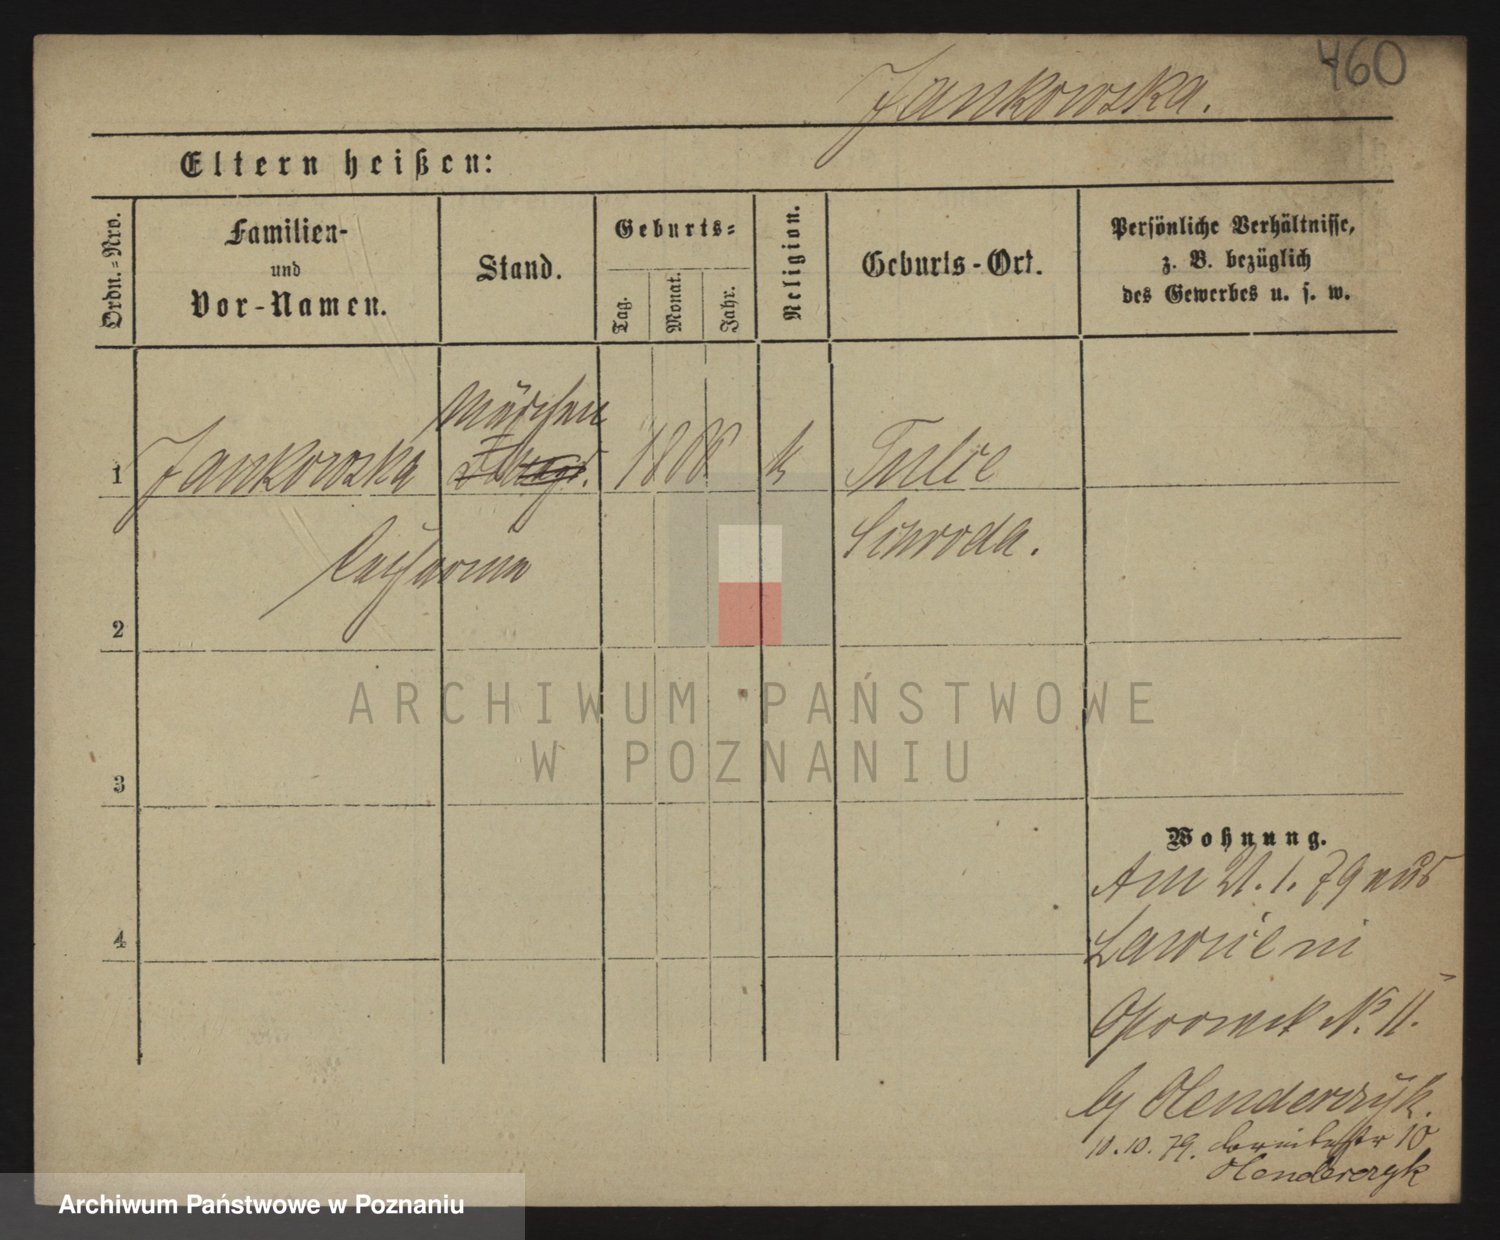 460
Jankowska.
Eltern heißen:
Ordn.=Nro.
Familien-
und
Vor-Namen.
Stand.
Geburts=
Tag.
Monat.
Jahr.
Religion.
Geburts-Ort.
Persönliche Verhältnisse,
z. B. bezüglich
des Gewerbes u. s. w.
1 Jankowska k Tulce
Catharina Schroda.
2
ARCHIWUM PAŃSTWOWE
W POZNANIU
3
Wohnung.
Am 21. 1. 79 aus
4
Lawiceni
No. 11.
by Olenderczyk.
10. 10. 79. 10
Olenderczyk
Archiwum Państwowe w Poznaniu